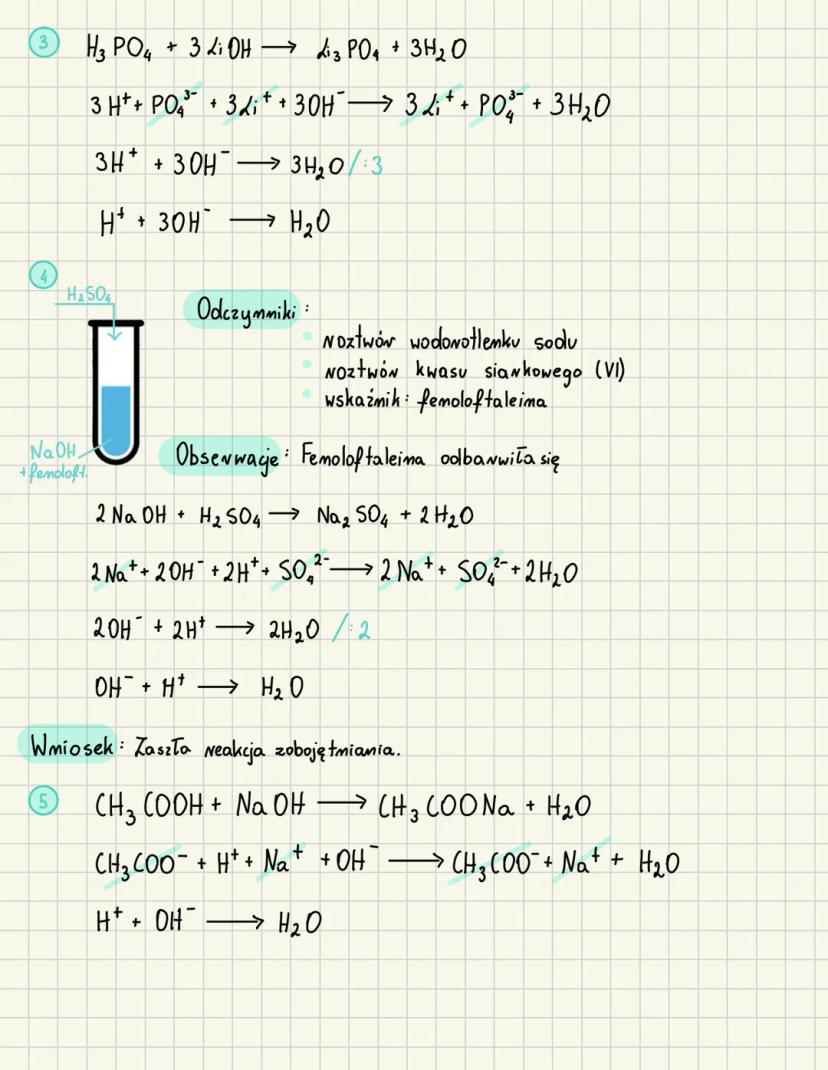 3 H₃PO₄ + 3LiOH → Li₃PO₄ + 3H₂O
3H⁺ + PO₄³⁻ + 3Li⁺ + 3OH⁻ → 3Li⁺ + PO₄³⁻ + 3H₂O
3H⁺ + 3OH⁻ → 3H₂O /:3
H⁺ + 3OH⁻ → H₂O
4
H₂SO₄
Odczynniki:
roztwór wodorotlenku sodu
roztwór kwasu siarkowego (VI)
wskaźnik: fenoloftaleina
NaOH
+ fenoloft.
Obserwacje: Fenoloftaleina odbarwiła się
2NaOH + H₂SO₄ → Na₂SO₄ + 2H₂O
2Na⁺ + 2OH⁻ + 2H⁺ + SO₄²⁻ → 2Na⁺ + SO₄²⁻ + 2H₂O
2OH⁻ + 2H⁺ → 2H₂O /:2
OH⁻ + H⁺ → H₂O
Wniosek: Zaszła reakcja zobojętniania.
5 CH₃COOH + NaOH → CH₃COONa + H₂O
CH₃COO⁻ + H⁺ + Na⁺ + OH⁻ → CH₃COO⁻ + Na⁺ + H₂O
H⁺ + OH⁻ → H₂O